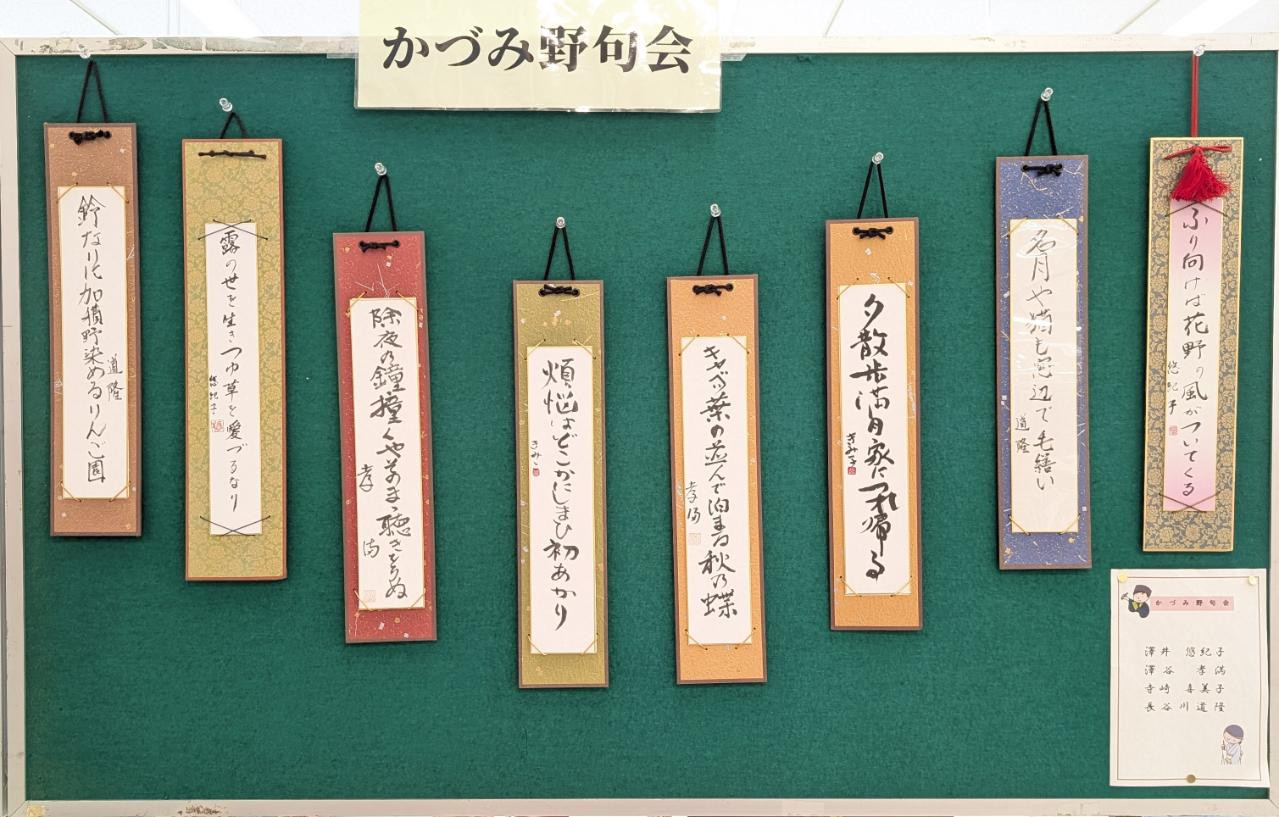 かづみ野句会
ふり向けば花野の風がついてくる
悠紀子
名月や猫も窓辺で毛繕い
道隆
夕散歩満月家に連れ帰る
きみ子
キャベツ葉の並んで泊まる秋の蝶
孝満
煩悩はどこかにしまひ初あかり
きみこ
除夜の鐘撞くや
聴きをらぬ
孝満
露の世を生きつゆ草を愛づるなり
悠紀子
鈴なりに加積野染めるりんご園
道隆
かづみ野句会
澤井 悠紀子
澤谷 孝満
寺崎 喜美子
長谷川道隆